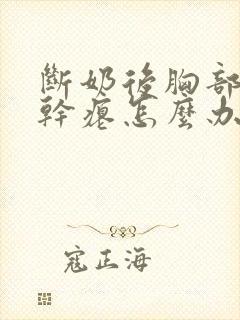 斷奶後胸部
幹癟怎麼办
寇正海